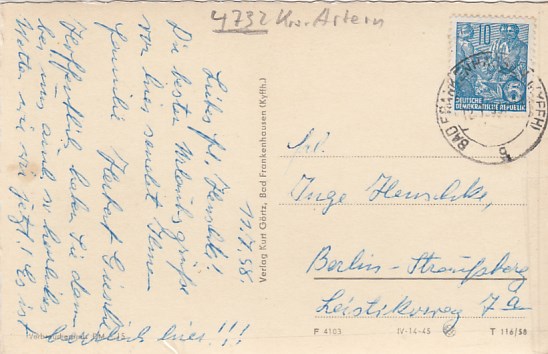 4732 Kr. Artern
11.7.58
Liebes Frl. Henschke!
Die besten Urlaubsgrüße
von hier sendet Ihnen
Familie Herbert
Hoffentlich haben Sie dann
bei uns auch so herrliches
Wetter wie wir jetzt! Es ist
herrlich hier!!!
Verlag Kurt Görtz, Bad Frankenhausen (Kyffh.)
10
5
DEUTSCHE
DEMOKRATISCHE REPUBLIK
BAD FRANKENHAUSEN (KYFFH)
b
Frl.
Inge Henschke,
Berlin-Straußberg
Leistikowweg 7a
F 4103
IV-14-45
T 116/58